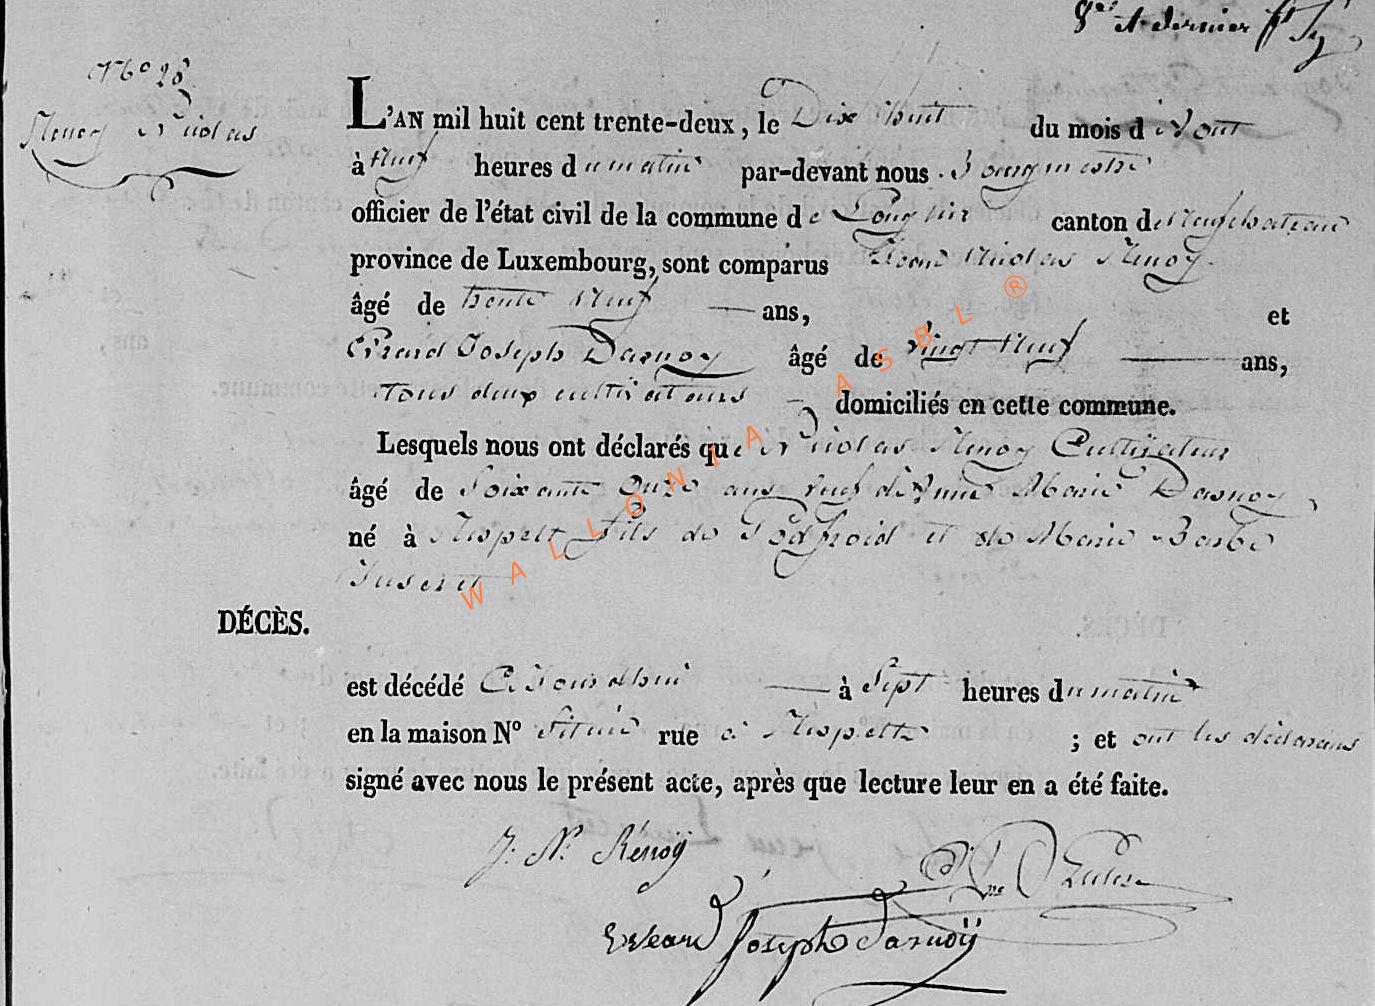 8e et dernier
No 28
Renoy Nicolas
L'AN mil huit cent trente-deux, le Dix huit du mois d'Aout
à neuf heures du matin par-devant nous Bourgmestre
officier de l'état civil de la commune de Longlier canton de Neufchateau
province de Luxembourg, sont comparus Jean Nicolas Renoy
âgé de trente Neuf ans, et
Evrard Joseph Dasnoy âgé de vingt Neuf ans,
tous deux cultivateurs domiciliés en cette commune.
Lesquels nous ont déclarés que Nicolas Renoy Cultivateur
âgé de Soixante onze ans veuf d'Anne Marie Dasnoy
né à Respelt fils de Godfroid et de Marie Barbe
Juseret
DÉCÈS.
est décédé Cejourdhui à Sept heures du matin
en la maison No Située rue à Respelte ; et ont les déclarans
signé avec nous le présent acte, après que lecture leur en a été faite.
J. N. Rénoÿ
Evrard Joseph Dasnoÿ
WALLONIA ASBL ®